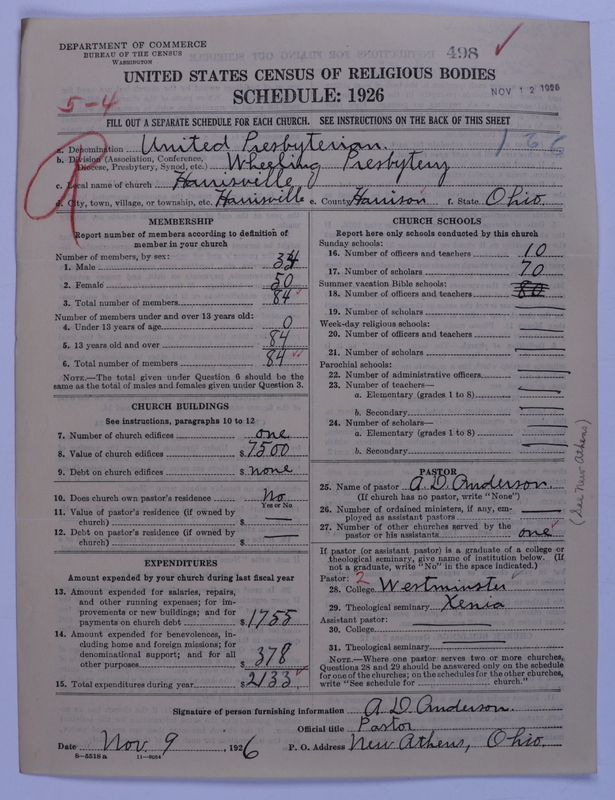 DEPARTMENT OF COMMERCE
BUREAU OF THE CENSUS
WASHINGTON
498
UNITED STATES CENSUS OF RELIGIOUS BODIES
SCHEDULE: 1926
NOV 12 1926
5-4
FILL OUT A SEPARATE SCHEDULE FOR EACH CHURCH. SEE INSTRUCTIONS ON THE BACK OF THIS SHEET
a. Denomination United Presbyterian.
126
b. Division (Association, Conference, Diocese, Presbytery, Synod, etc.) Wheeling Presbytery
c. Local name of church Harrisville
d. City, town, village, or township, etc. Harrisville e. County Harrison f. State Ohio.
MEMBERSHIP
Report number of members according to definition of
member in your church
Number of members, by sex:
1. Male 34
2. Female 50
3. Total number of members 84
Number of members under and over 13 years old:
4. Under 13 years of age 0
5. 13 years old and over 84
6. Total number of members 84
NOTE.—The total given under Question 6 should be the
same as the total of males and females given under Question 3.
CHURCH BUILDINGS
See instructions, paragraphs 10 to 12
7. Number of church edifices one
8. Value of church edifices $ 7500
9. Debt on church edifices $ none
10. Does church own pastor's residence No
Yes or No
11. Value of pastor's residence (if owned by
church) $ —
12. Debt on pastor's residence (if owned by
church) $ —
EXPENDITURES
Amount expended by your church during last fiscal year
13. Amount expended for salaries, repairs,
and other running expenses; for im-
provements or new buildings; and for
payments on church debt $ 1755
14. Amount expended for benevolences, in-
cluding home and foreign missions; for
denominational support; and for all
other purposes $ 378
15. Total expenditures during year $ 2133
CHURCH SCHOOLS
Report here only schools conducted by this church
Sunday schools:
16. Number of officers and teachers 10
17. Number of scholars 70
Summer vacation Bible schools:
18. Number of officers and teachers 80
19. Number of scholars —
Week-day religious schools:
20. Number of officers and teachers —
21. Number of scholars —
Parochial schools:
22. Number of administrative officers —
23. Number of teachers—
a. Elementary (grades 1 to 8) —
b. Secondary —
24. Number of scholars—
a. Elementary (grades 1 to 8) —
b. Secondary —
PASTOR
25. Name of pastor A. D. Anderson.
(If church has no pastor, write "None")
26. Number of ordained ministers, if any, em-
ployed as assistant pastors —
27. Number of other churches served by the
pastor or his assistants one
(See New Athens)
If pastor (or assistant pastor) is a graduate of a college or
theological seminary, give name of institution below. (If
not a graduate, write "No" in the space indicated.)
Pastor: 2
28. College Westminster
29. Theological seminary Xenia
Assistant pastor: —
30. College —
31. Theological seminary
NOTE.—Where one pastor serves two or more churches,
Questions 28 and 29 should be answered only on the schedule
for one of the churches; on the schedules for the other churches,
write "See schedule for church."
Signature of person furnishing information A. D. Anderson.
Official title Pastor
Date Nov. 9, 1926 P. O. Address New Athens, Ohio.
8-5518a 11-9054